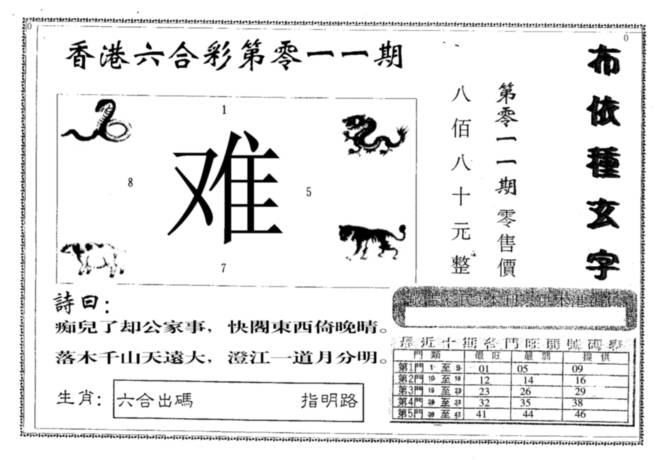 香港六合彩第零一一期
1
难
8
5
7
詩曰:
痴兒了却公家事，快閣東西倚晚晴。
落木千山天遠大，澄江一道月分明。
生肖:
六合出碼 指明路
布依種玄字
第零一一期零售價
八佰八十元整
最近十期各門旺開號碼
門類 最旺 提供
第1門 至 9 01 05 09
第2門 10 至 18 12 14 16
第3門 至 23 26 29
第4門 至 32 35 38
第5門 至 41 44 46